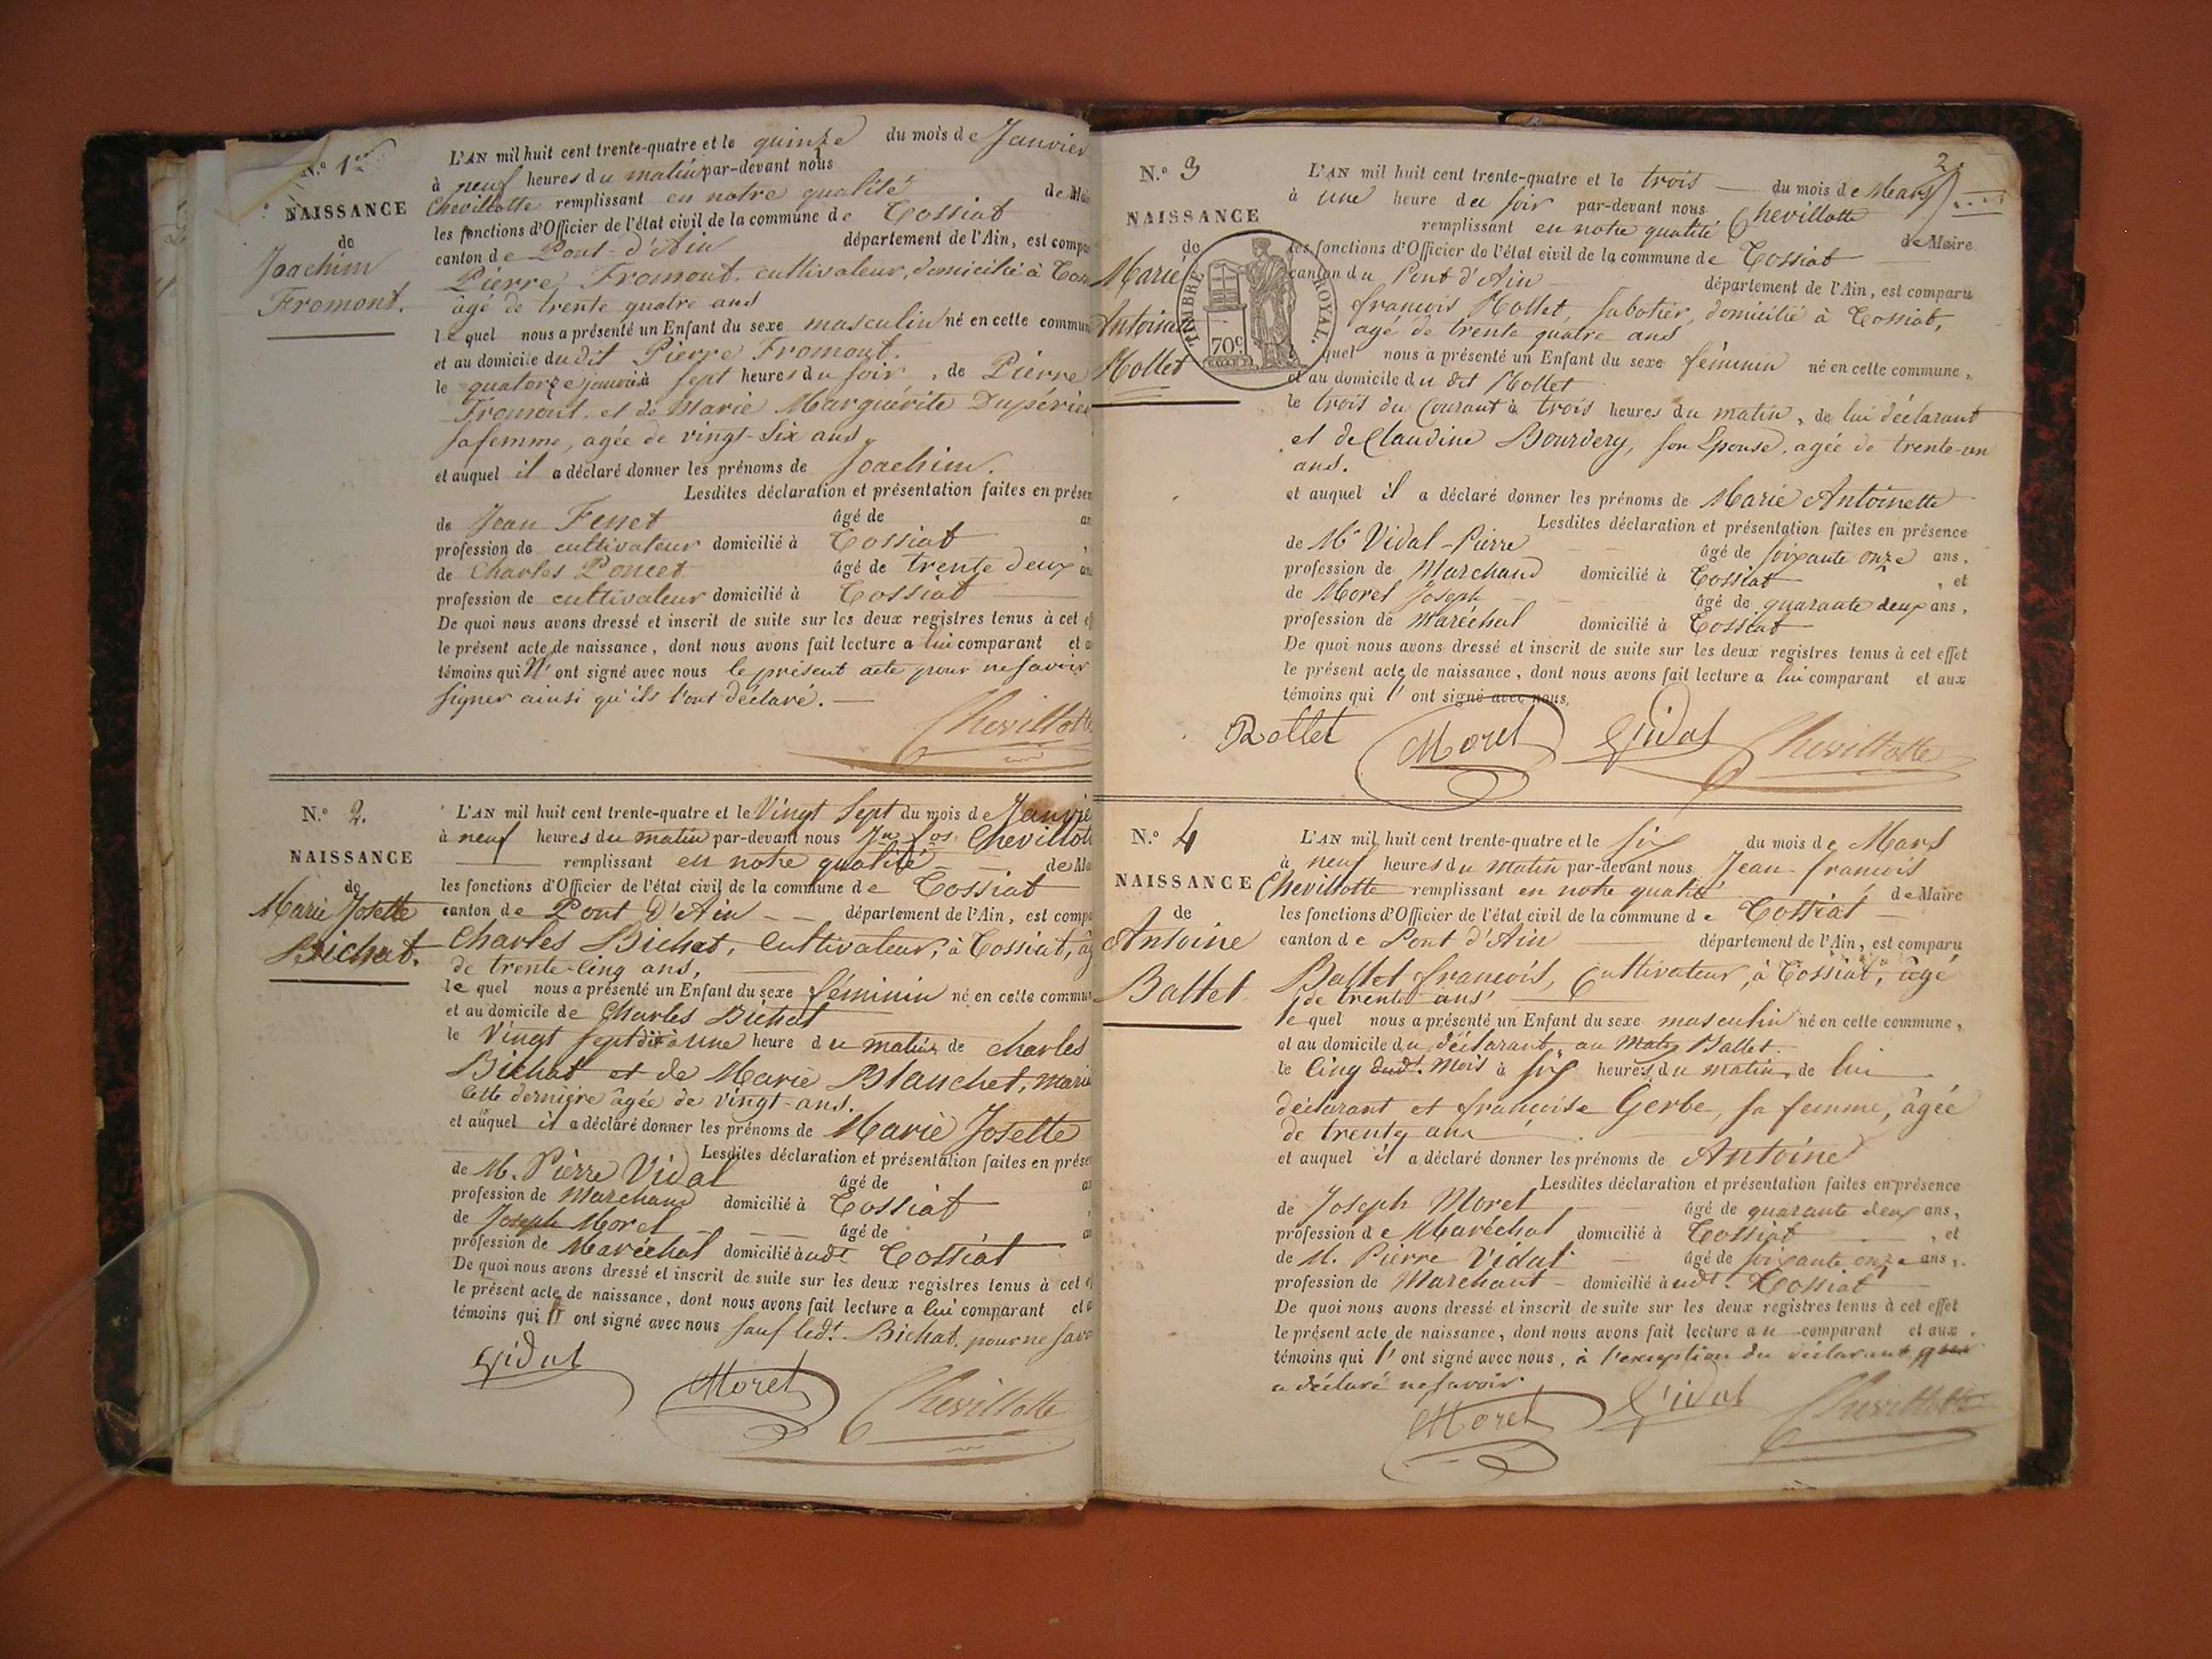 N.o 1er
NAISSANCE
de
Joachim
Fromont.
L'AN mil huit cent trente-quatre et le quinze du mois de Janvier
à neuf heures du matin par-devant nous
Chevillotte remplissant en notre qualité de Mai
les fonctions d'Officier de l'état civil de la commune de Tossiat
canton de Pont-d'Ain département de l'Ain, est compa
Pierre Fromont, cultivateur, domicilié à Toss
âgé de trente quatre ans
lequel nous a présenté un Enfant du sexe masculin né en cette commun
et au domicile dudit Pierre Fromont.
le quatorze janvier à sept heures du soir, de Pierre
Fromont et de Marie Marguerite Dupérier
sa femme, agée de vingt-six ans
et auquel il a déclaré donner les prénoms de Joachim.
Lesdites déclaration et présentation faites en présen
de Jean Ferret âgé de an
profession de cultivateur domicilié à Tossiat
de Charles Poncet âgé de trente deux an
profession de cultivateur domicilié à Tossiat
De quoi nous avons dressé et inscrit de suite sur les deux registres tenus à cet ef
le présent acte de naissance, dont nous avons fait lecture a lui comparant et a
témoins qui n'ont signé avec nous le présent acte pour ne savoir
signer ainsi qu'ils l'ont déclaré.
Chevillotte
N.o 2.
NAISSANCE
de
Marie Josette
Bichat.
L'AN mil huit cent trente-quatre et le Vingt Sept du mois de Janvie
à neuf heures du matin par-devant nous Jn fos Chevillott
remplissant en notre qualité de Ma
les fonctions d'Officier de l'état civil de la commune de Tossiat
canton de Pont d'Ain département de l'Ain, est compa
Charles Bichat, Cultivateur, à Tossiat, âg
de trente-cinq ans,
lequel nous a présenté un Enfant du sexe féminin né en cette commun
et au domicile de Charles Bichat
le Vingt sept dit à une heure du matin de charles
Bichat et de Marie Blanchet, marié
cette dernière âgée de vingt-ans.
et auquel il a déclaré donner les prénoms de Marie Josette
Lesdites déclaration et présentation faites en prése
de M. Pierre Vidal âgé de an
profession de Marchand domicilié à Tossiat
de Joseph Morel âgé de an
profession de Maréchal domicilié à udt Tossiat
De quoi nous avons dressé et inscrit de suite sur les deux registres tenus à cet e
le présent acte de naissance, dont nous avons fait lecture a lui comparant et a
témoins qui l'ont signé avec nous sauf ledt. Bichat, pour ne savo
Vidal Morel Chevillotte
2.
N.o 3
NAISSANCE
de
Marie
Antoinette
Rollet
TIMBRE ROYAL.
70c
L'AN mil huit cent trente-quatre et le trois du mois de Mars
à une heure du soir par-devant nous Chevillotte
remplissant en notre qualité de Maire
les fonctions d'Officier de l'état civil de la commune de Tossiat
canton du Pont d'Ain département de l'Ain, est comparu
françois Rollet, Sabotier, domicilié à Tossiat,
agé de trente quatre ans
quel nous a présenté un Enfant du sexe féminin né en cette commune,
et au domicile du dit Rollet
le trois du Courant à trois heures du matin, de lui déclarant
et de Claudine Bourdery, son Epouse, agée de trente-un
ans.
et auquel il a déclaré donner les prénoms de Marie Antoinette
Lesdites déclaration et présentation faites en présence
de Mr Vidal-Pierre âgé de soixante onze ans,
profession de Marchand domicilié à Tossiat, et
de Morel Joseph âgé de quarante deux ans,
profession de Maréchal domicilié à Tossiat
De quoi nous avons dressé et inscrit de suite sur les deux registres tenus à cet effet
le présent acte de naissance, dont nous avons fait lecture a lui comparant et aux
témoins qui l'ont signé avec nous.
Rollet Morel Vidal Chevillotte
N.o 4
NAISSANCE
de
Antoine
Ballet
L'AN mil huit cent trente-quatre et le six du mois de Mars
à neuf heures du matin par-devant nous Jean-françois
Chevillotte remplissant en notre qualité de Maire
les fonctions d'Officier de l'état civil de la commune de Tossiat
canton de Pont d'Ain département de l'Ain, est comparu
Ballet françois, Cultivateur, à Tossiat, âgé
de trente ans
lequel nous a présenté un Enfant du sexe masculin né en cette commune,
et au domicile du déclarant, au Ballet.
le Cinq dudt. mois à six heures du matin, de lui
déclarant et françoise Gerbe, sa femme, âgée
de trente ans
et auquel il a déclaré donner les prénoms de Antoine
Lesdites déclaration et présentation faites en présence
de Joseph Morel âgé de quarante deux ans,
profession de Maréchal domicilié à Tossiat, et
de M. Pierre Vidal âgé de soixante onze ans,
profession de Marchant domicilié à udt. Tossiat
De quoi nous avons dressé et inscrit de suite sur les deux registres tenus à cet effet
le présent acte de naissance, dont nous avons fait lecture au comparant et aux
témoins qui l'ont signé avec nous, à l'exception du déclarant que
a déclaré ne savoir.
Morel Vidal Chevillotte